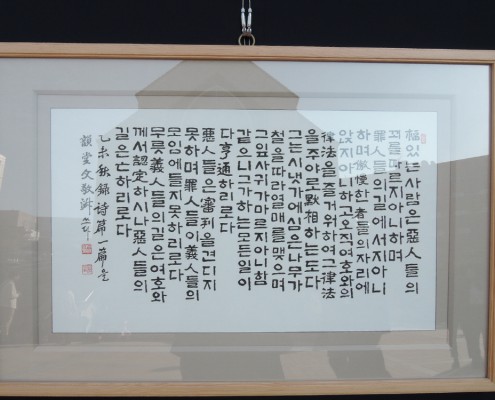 福있는사람은惡人들의
꾀를따르지아니하며
罪人들의길에서지아니
하며傲慢한者들의자리에
앉지아니하고오직여호와의
律法을즐거워하여그律法
을주야로默想하는도다
그는시냇가에심은나무가
철을따라열매를맺으며
그잎사귀가마르지아니함
같으니그가하는모든일이
다亨通하리로다
惡人들은審判을견디지
못하며罪人들이義人들의
모임에들지못하리로다
무릇義人들의길은여호와
께서認定하시나惡人들의
길은亡하리로다
乙未秋錄詩篇一篇
文敎